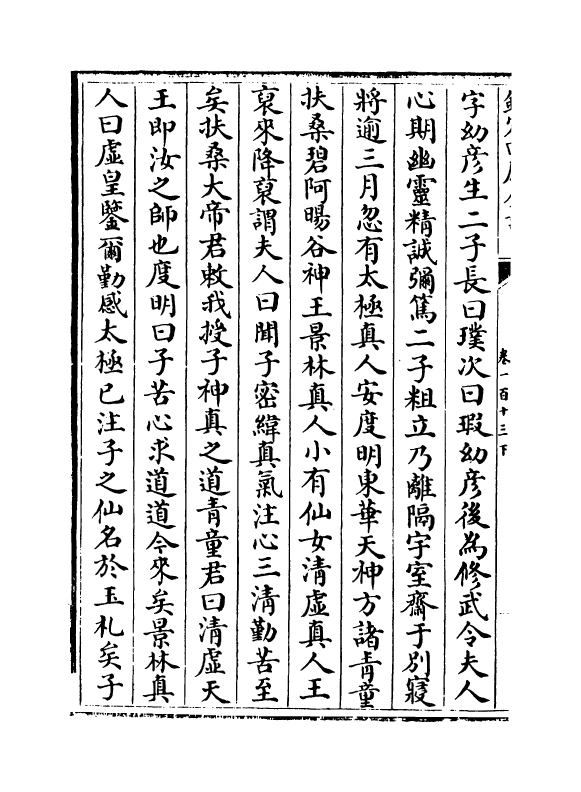 字幼彦生二子長曰璞次曰瑕幼彦後為修武令夫人
心期幽靈精誠彌篤二子粗立乃離隔宇室齋于別寢
將逾三月忽有太極真人安度明東華天神方諸青童
扶桑碧阿暘谷神王景林真人小有仙女清虛真人王
裒來降裒謂夫人曰聞子密緯真氣注心三清勤苦至
矣扶桑大帝君敕我授子神真之道青童君曰清虛天
王即汝之師也度明曰子苦心求道道今來矣景林真
人曰虛皇鑒爾勤感太極已注子之仙名於玉札矣子
卷一百十三下